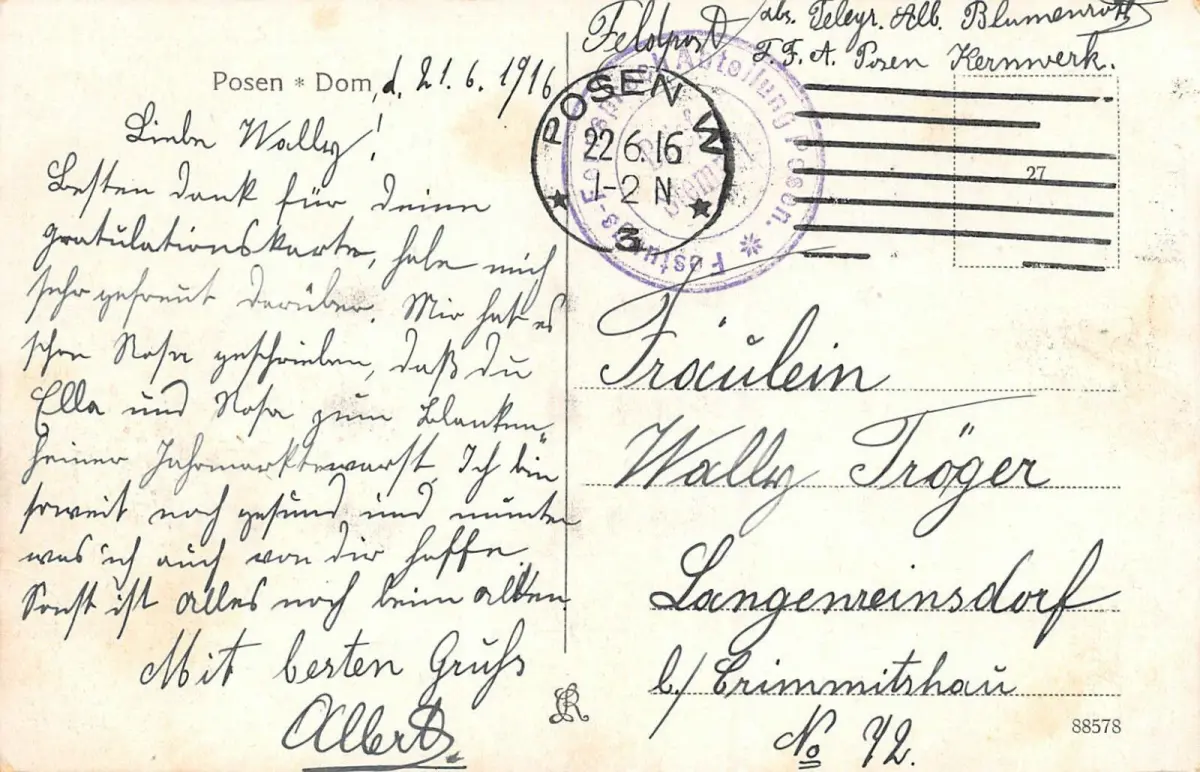 Feldpost
abs. Telegr. Alb. Blumenroth
F. F. A. Posen Kernwerk.
Posen * Dom, d. 21.6.1916
Liebe Wally!
Besten dank für deine
gratulationskarte, habe mich
sehr gefreut darüber. Mir hat es
schon Rosa geschrieben, daß du
Ella und Rosa zum Blanken
heiner Jahrmarkte warst. Ich bin
soweit noch gesund und munter
was ich auch von dir hoffe.
Sonst ist alles noch beim alten
Mit besten Gruhs
Albert.
POSEN W
22.6.16
1-2 N
3
Festungs-
Abteilung Posen.
27
Fräulein
Wally Tröger
Langenreinsdorf
b/ Crimmitshau
No 72.
88578